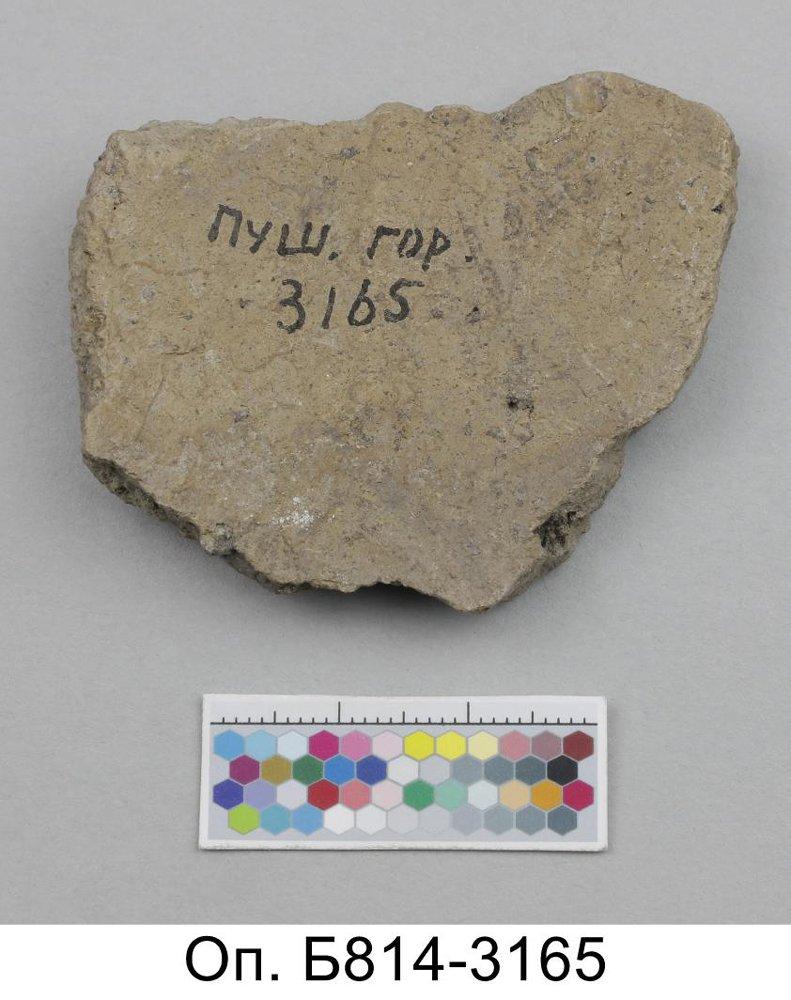 ПУШ. ГОР.
3165
Оп. Б814-3165